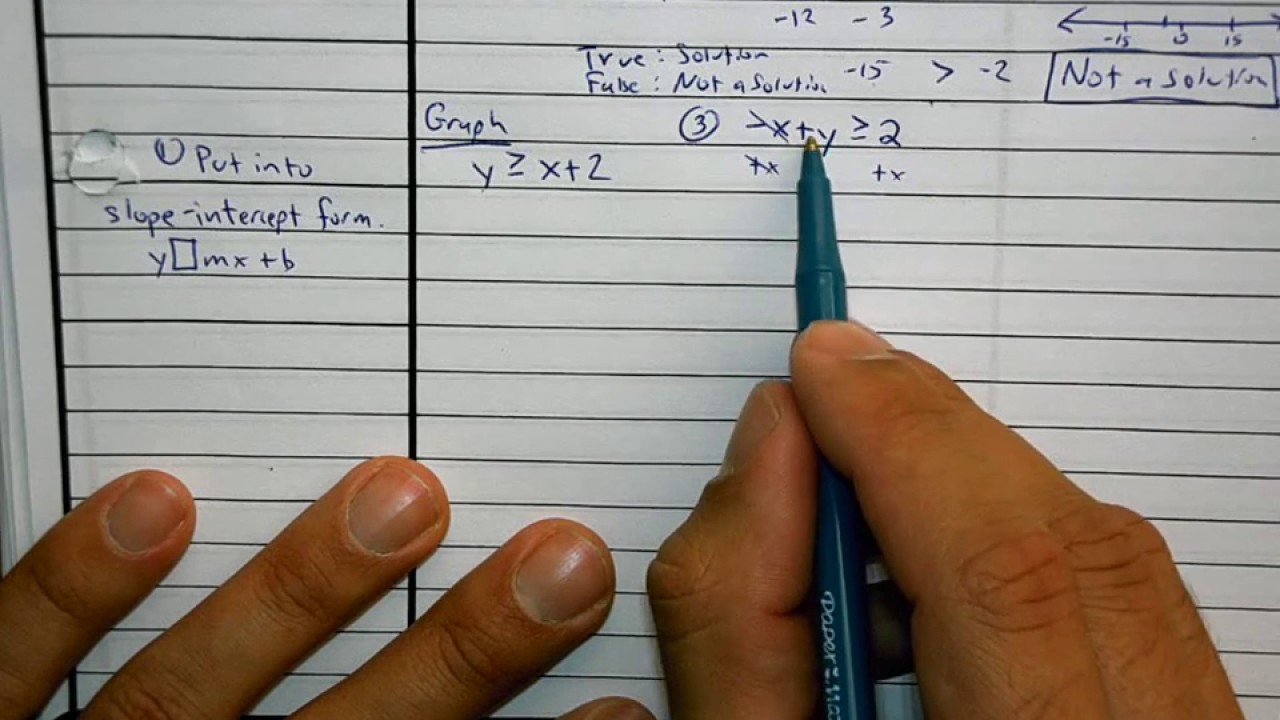 -12 -3
-15 0 15
True: Solution
False: Not a Solution -15 > -2 Not a solution
Graph ③ -x+y ≥ 2
① Put into y ≥ x+2 +x +x
slope-intercept form.
y□mx+b
paper:Ma